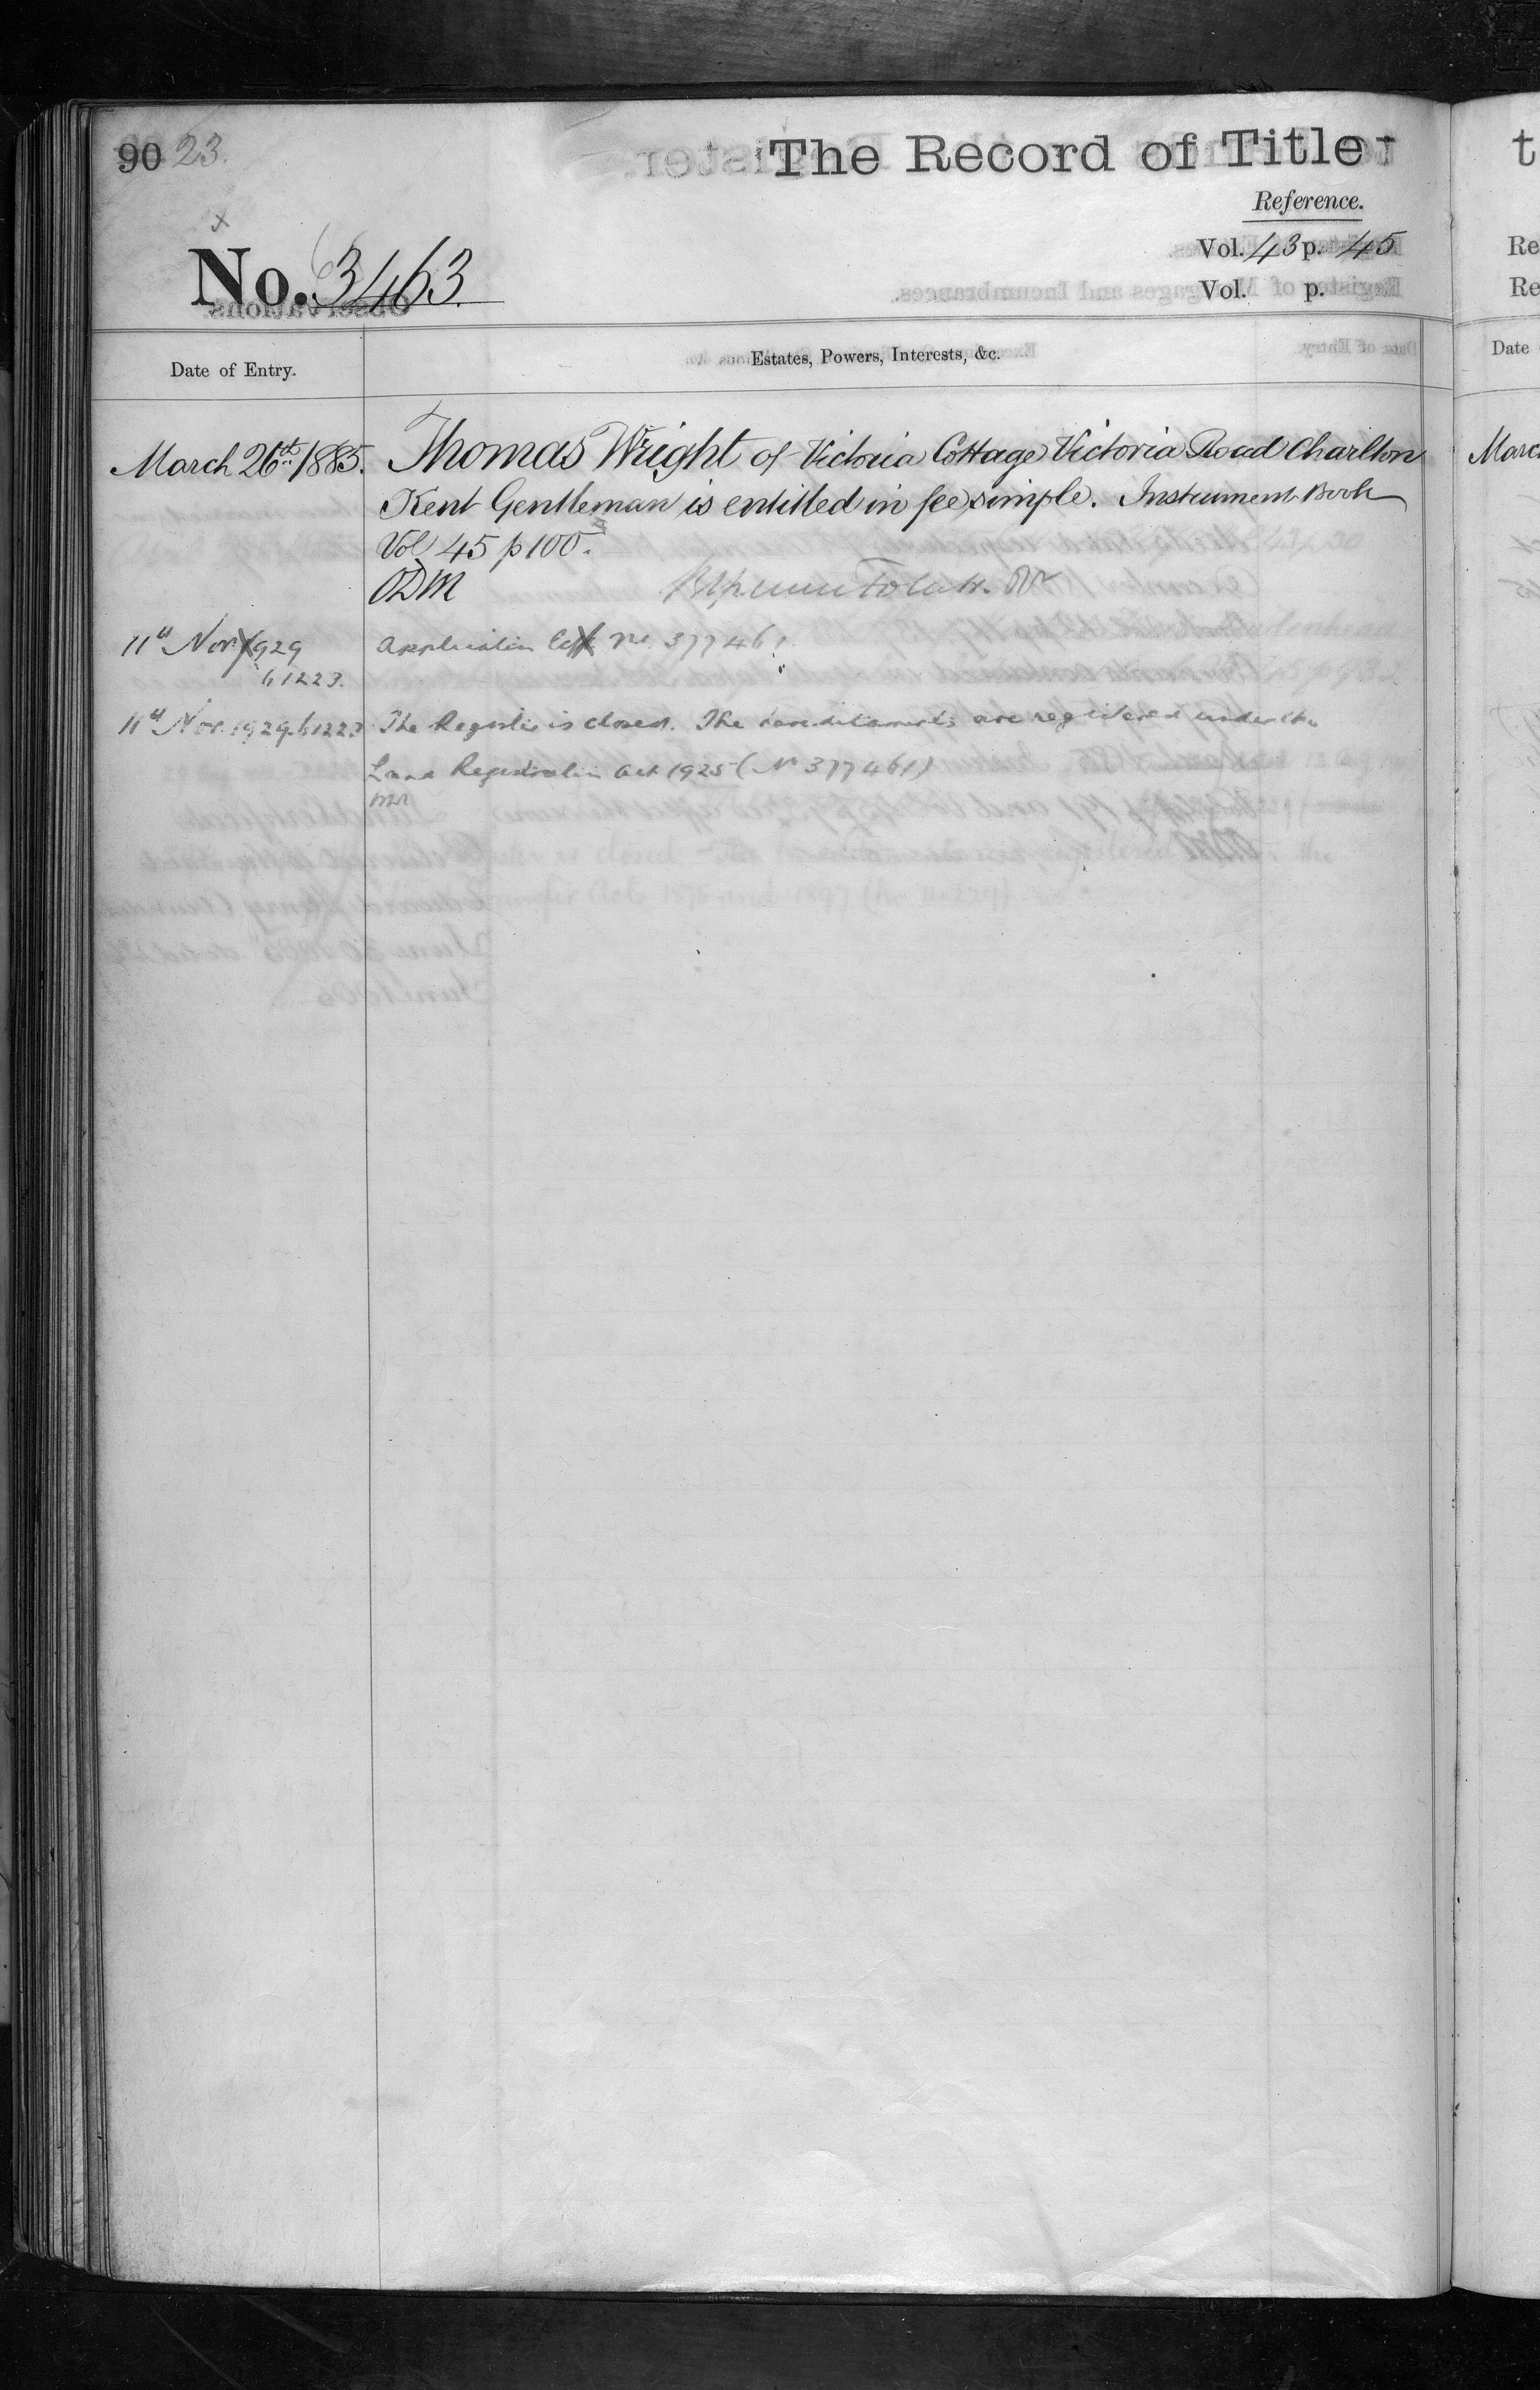 90 23.
The Record of Title
Reference.
Vol. 43 p. 45
No. 3463
Vol. p.
Date of Entry.
Estates, Powers, Interests, &c.
March 26th 1885.
Thomas Wright of Victoria Cottage Victoria Road Charlton
Kent Gentleman is entitled in fee simple. Instrument Book
Vol 45 p 100.
ODM
11th Nov 1929
61223.
Application No. 377461
11th Nov. 1929. 61223
The Register is closed. The hereditaments are registered under the
Land Registration Act 1925 (No 377461)
t
Re
Re
Date
Marc